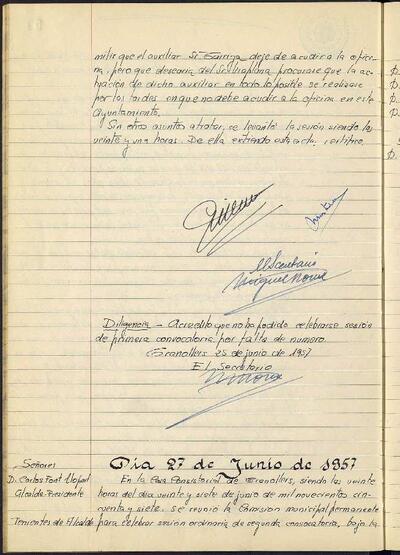 mitir que el auxiliar Sr. Garriga deje de acudir a la ofici-
na, pero que desearía del Sr. Viaplana procurase que la ac-
tuación de dicho auxiliar en todo lo posible se realizase
por las tardes en que no debe acudir a la oficina en este
Ayuntamiento.
Sin otros asuntos a tratar, se levantó la sesión siendo las
veinte y una horas. De ella extiendo esta acta, certifico,
El Secretario
Diligencia - Acredito que no ha podido celebrarse sesión
de primera convocatoria por falta de numero.
Granollers 25 de junio de 1957
El Secretario
Señores
Día 27 de Junio de 1957
D. Carlos Font Llopart
Alcalde-Presidente
En la Casa Consistorial de Granollers, siendo las veinte
horas del día veinte y siete de junio de mil novecientos cin-
cuenta y siete. Se reunió la Comision municipal permanente
Tenientes de Alcalde
para celebrar sesión ordinaria de segunda convocatoria, bajo la